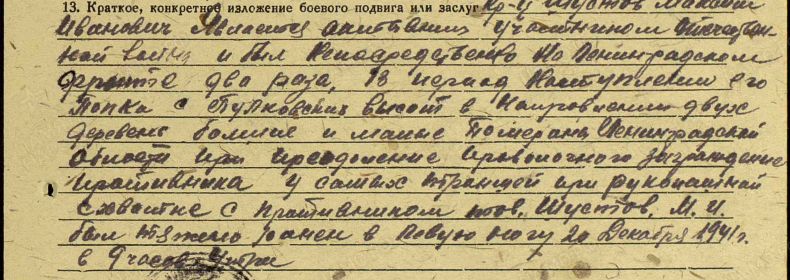 13. Краткое, конкретное изложение боевого подвига или заслуг Кр-ц Шустов Максим
Иванович является активным участником Отечествен-
ной войны и был непосредственно на Ленинградском
фронте два раза. В период наступления его
полка с Пулковских высот в направлении двух
деревень большие и малые Помераны Ленинградской
области при преодоление проволочного заграждение
противника у самых траншей при рукопашной
схвастке с противником тов. Шустов. М. И.
был тяжело ранен в левую ногу 20 декабря 1941 г.
в 9 часов утра